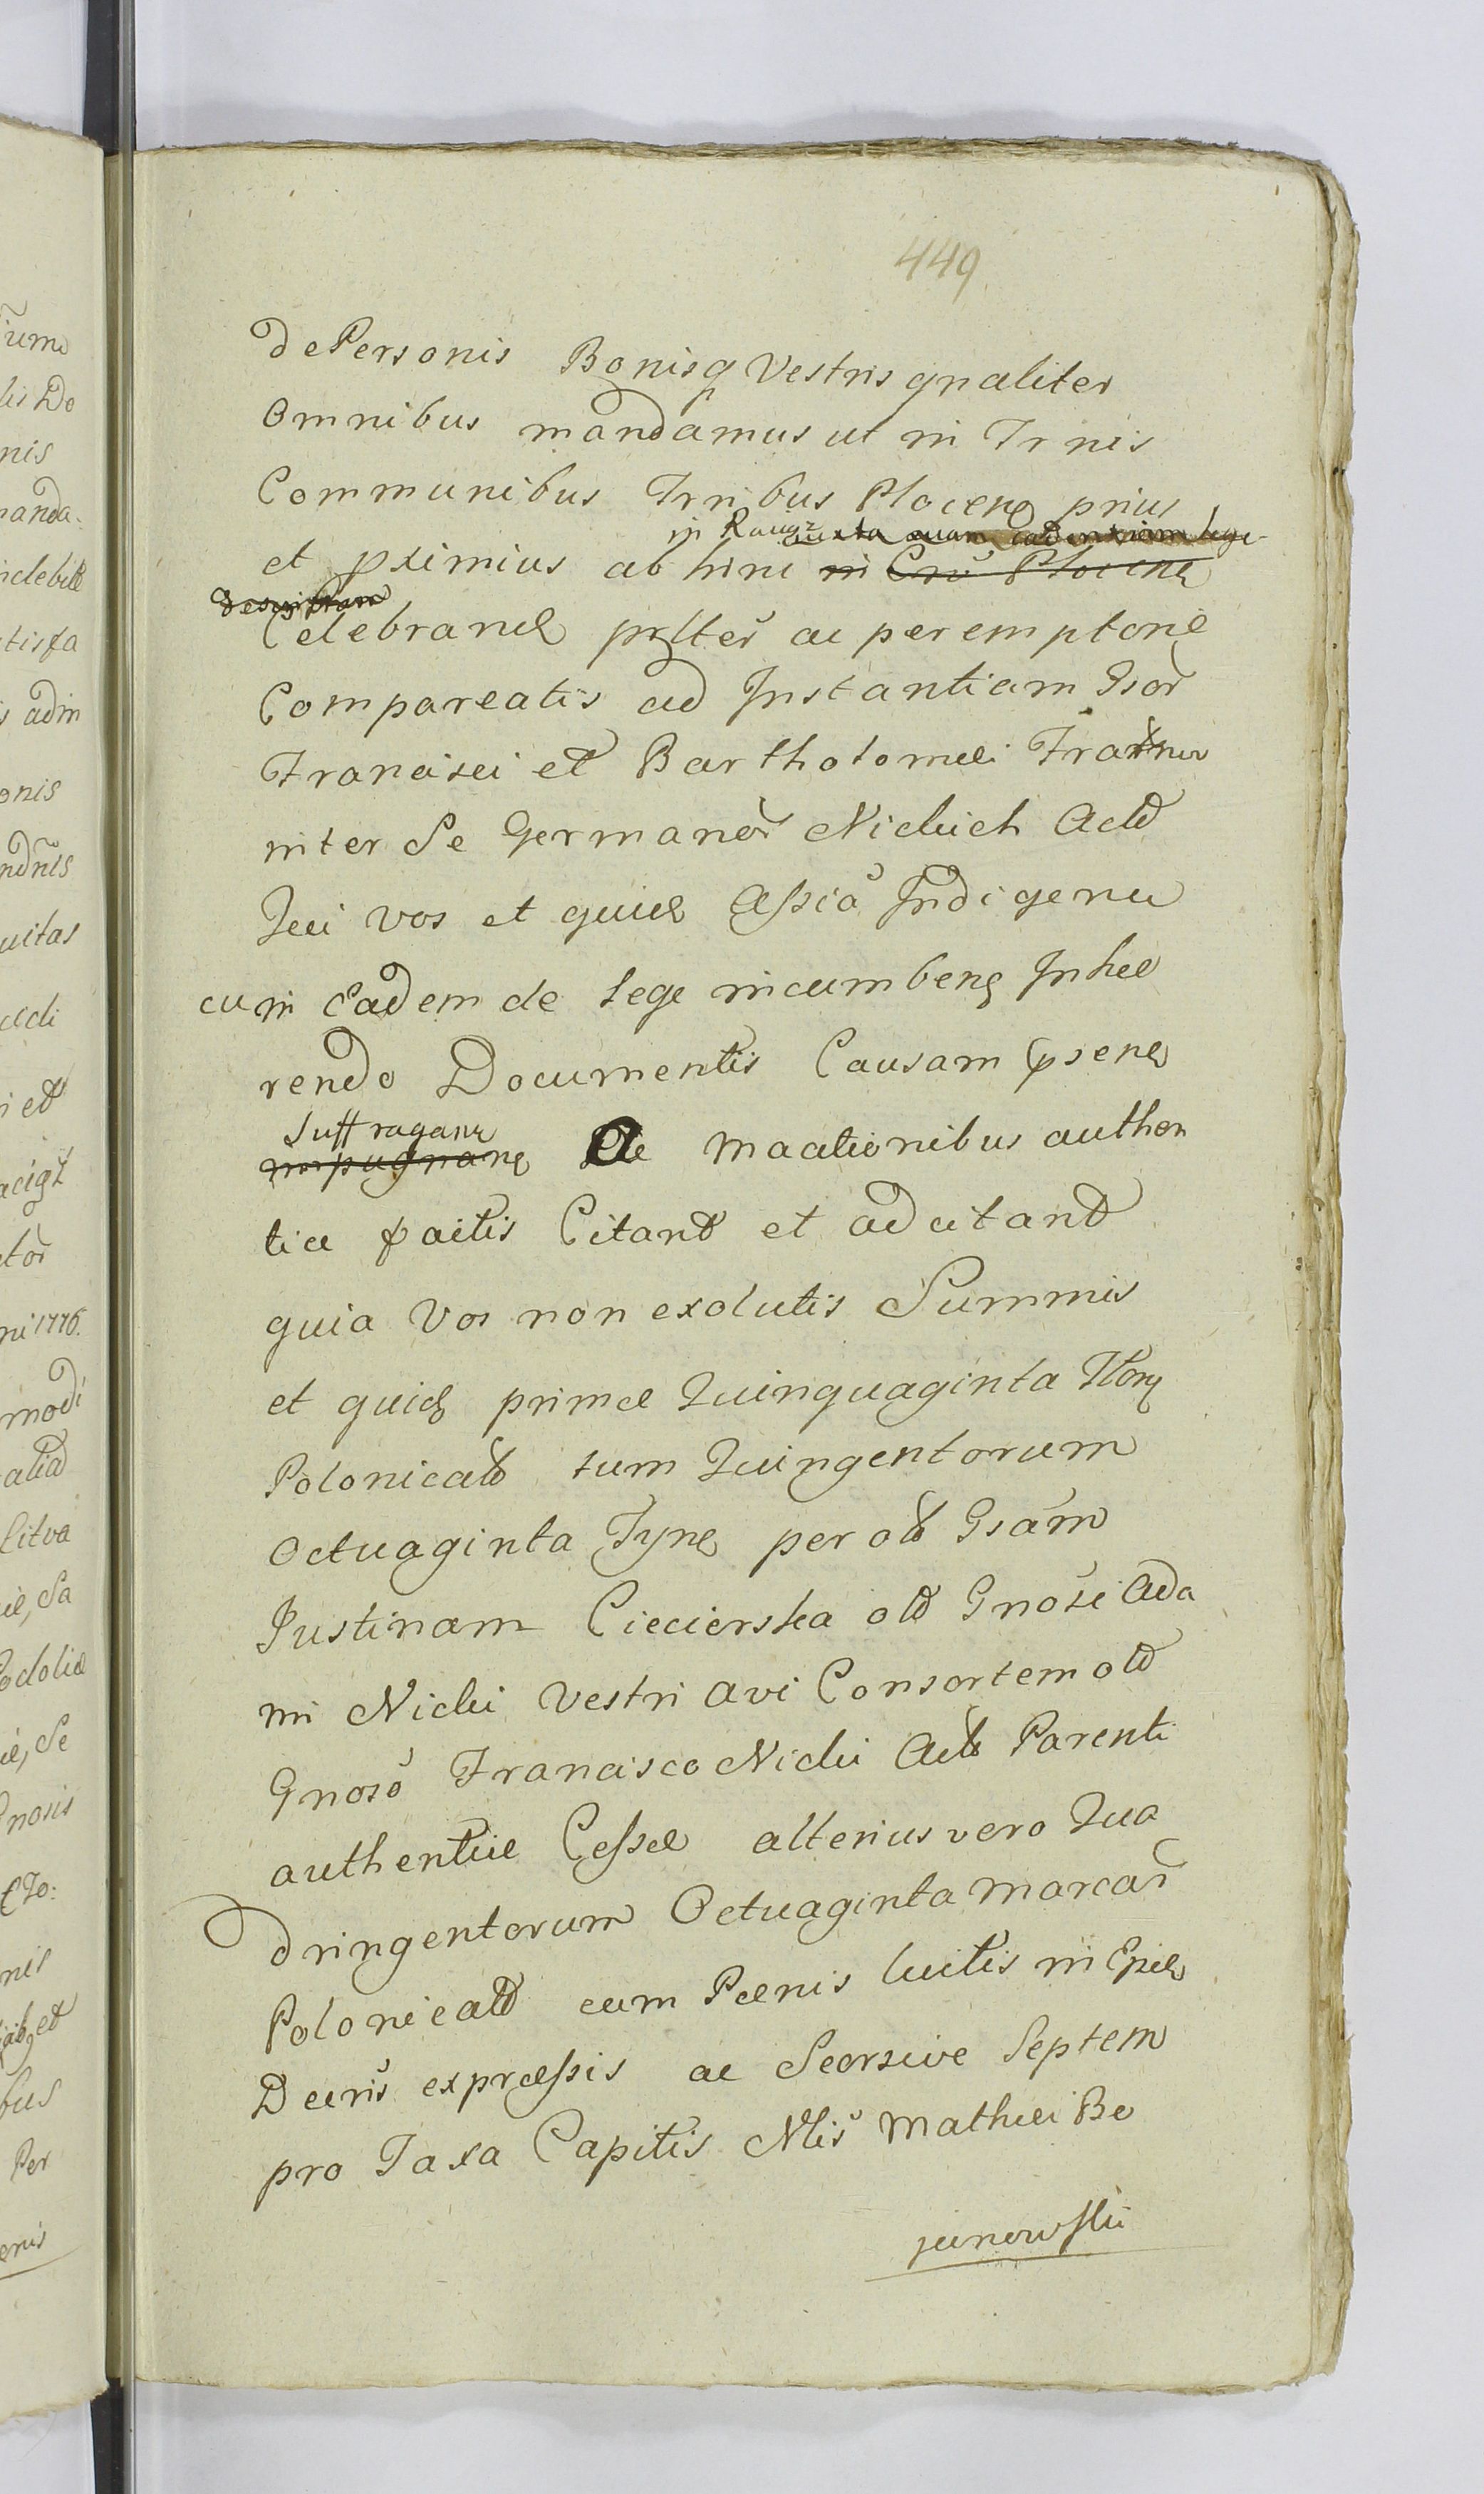 449
de Personis Bonisq Vestris gnaliter
Omnibus mandamus ut in Trnis
Communibus Trribus Plocen prius
in Raciąz juxta suam cadentiam lege
et pximius ab hinc in Crõ Plocen
descriptam
Celebrand prltter ac peremptorie
Compareatis ad Instantiam Gsor
Francisci et Bartholomei Fratru
inter Se Germanor Nickich Actt
Qui vos et quidē Assiā Indigenu
cum Eadem de Lege incumbeng Inhæ
rendo Documentis Causam Psen
Suffragann
impugnang De mactionibus authen
tice factis Citand et adcitand
quia Vos non exolutis Summis
et quid primæ Quinquaginta Flon
Polonicalt tum Quingentorum
Octuaginta Tyn per olt Gsām
Justinam Ciecierska olt Gnosi Ada
mi Nicki Vestri Avi Consortem olt
Gnoso Francisco Nicki Actt Parenti
authentice Cessæ alterius vero Qua
dringentorum Octuaginta Marcar
Polonicalt cum Pœnis luitis in Epie
Decris expræssis ac Seorsive Septem
pro Taxa Capitis Nlis Mathiei Be
junowskii
iumo
lis Do
nis
manda
indebitt
tisfa
s adin
onis
ndnis
uitas
uedi
i et
acigł
tor
ni 1776.
modi
alia
Litva
ie, Sa
Podoliæ
iæ, Se
Gnosis
nis
et
bus
Per
enis